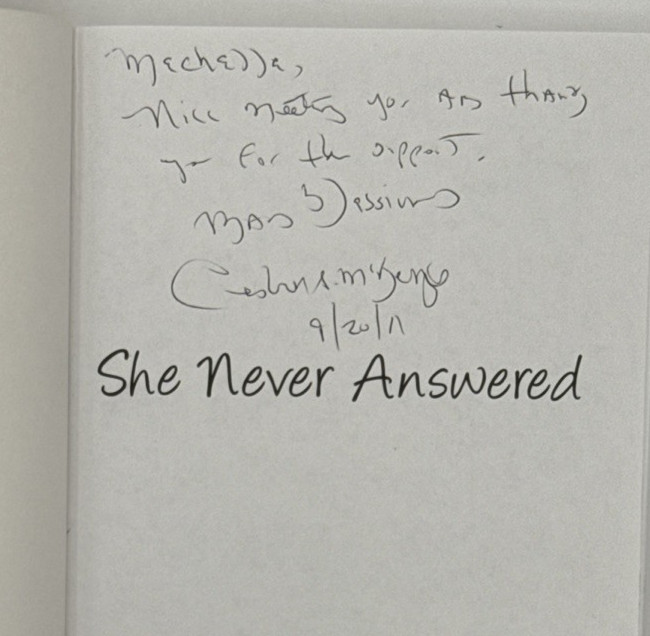 Mechelle,
Nice meeting you and thank
you for the support.
Many Blessings
9/20/11
She Never Answered